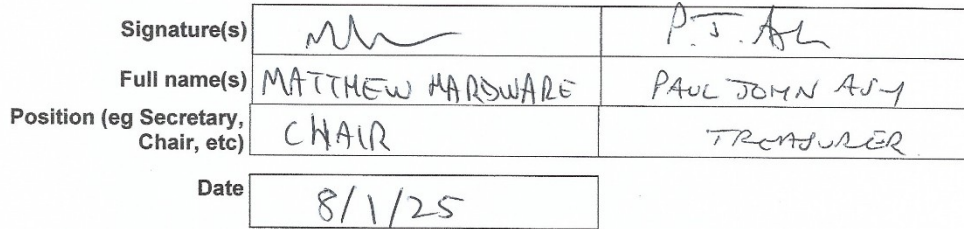 Signature(s) P.J. Ash
Full name(s) MATTHEW HARDWARE PAUL JOHN ASH
Position (eg Secretary,
Chair, etc) CHAIR TREASURER
Date 8/1/25